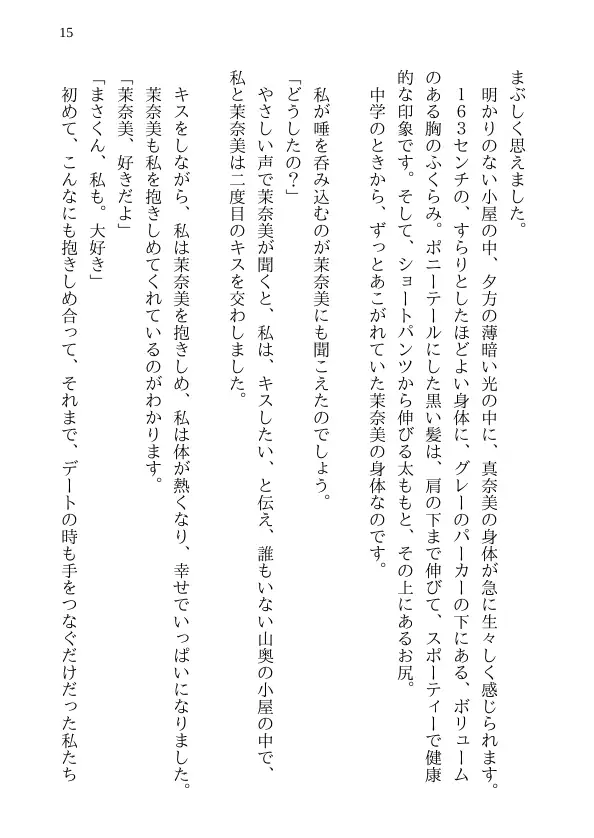 15
まぶしく思えました。
明かりのない小屋の中、夕方の薄暗い光の中に、真奈美の身体が急に生々しく感じられます。
163センチの、すらりとしたほどよい身体に、グレーのパーカーの下にある、ボリューム
のある胸のふくらみ。ポニーテールにした黒い髪は、肩の下まで伸びて、スポーティーで健康
的な印象です。そして、ショートパンツから伸びる太ももと、その上にあるお尻。
中学のときから、ずっとあこがれていた茉奈美の身体なのです。
私が唾を呑み込むのが茉奈美にも聞こえたのでしょう。
「どうしたの？」
やさしい声で茉奈美が聞くと、私は、キスしたい、と伝え、誰もいない山奥の小屋の中で、
私と茉奈美は二度目のキスを交わしました。
キスをしながら、私は茉奈美を抱きしめ、私は体が熱くなり、幸せでいっぱいになりました。
茉奈美も私を抱きしめてくれているのがわかります。
「茉奈美、好きだよ」
「まさくん、私も。大好き」
初めて、こんなにも抱きしめ合って、それまで、デートの時も手をつなぐだけだった私たち